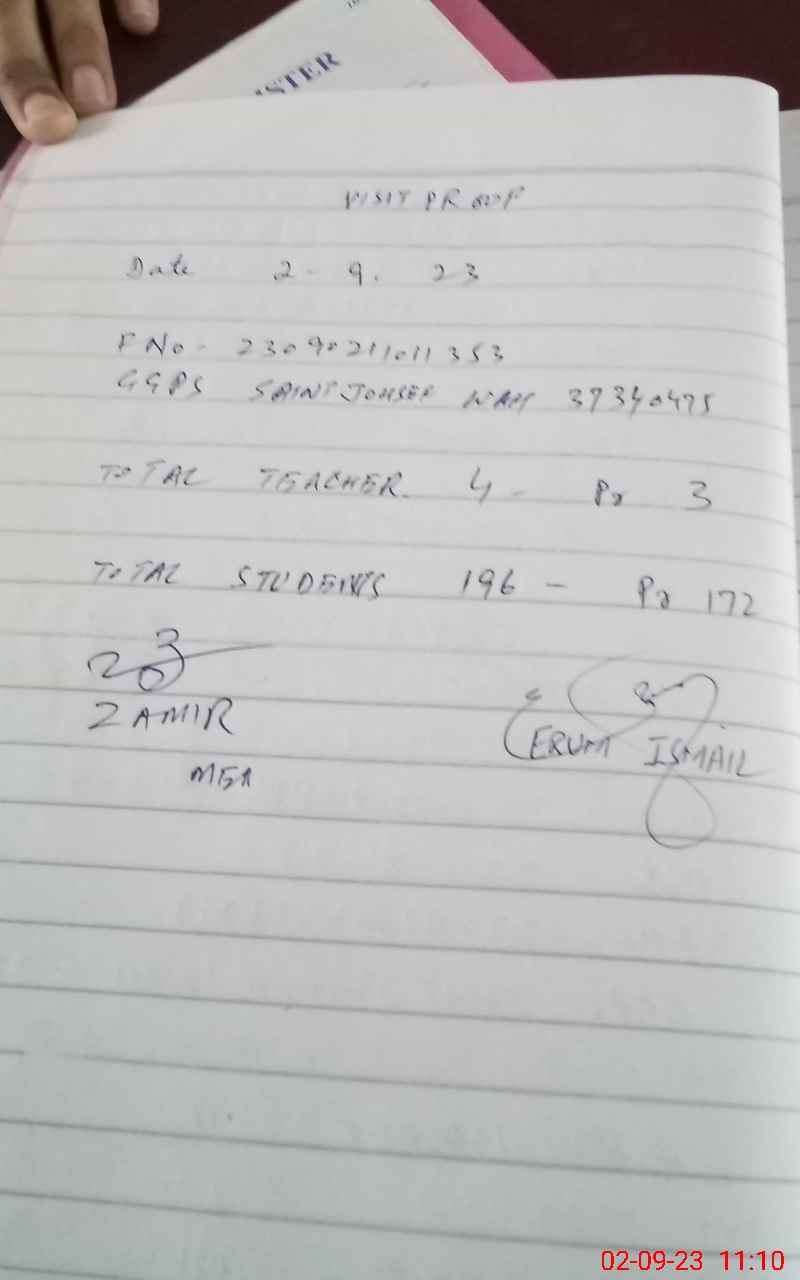 ISTER
VISIT PROOF
Date 2-9.23
F No- 23090211011353
GGPS SAINT JOHSEF WAH 37340475
TOTAL TEACHER. 4 - Pr 3
TOTAL STUDENTS 196 - Pr 172
ZAMIR
MEA
ERUM ISMAIL
02-09-23 11:10